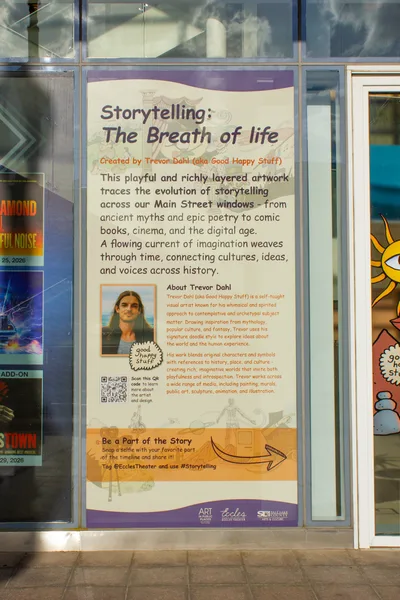 Storytelling:
The Breath of life
Created by Trevor Dahl (aka Good Happy Stuff)
This playful and richly layered artwork
traces the evolution of storytelling
across our Main Street windows - from
ancient myths and epic poetry to comic
books, cinema, and the digital age.
A flowing current of imagination weaves
through time, connecting cultures, ideas,
and voices across history.
About Trevor Dahl
Trevor Dahl (aka Good Happy Stuff) is a self-taught
visual artist known for his whimsical and spirited
approach to contemplative and archetypal subject
matter. Drawing inspiration from mythology,
popular culture, and fantasy, Trevor uses his
signature doodle style to explore ideas about
the world and the human experience.
His work blends original characters and symbols
with references to history, place, and culture -
creating rich, imaginative worlds that invite both
playfulness and introspection. Trevor works across
a wide range of media, including painting, murals,
public art, sculpture, animation, and illustration.
good
happy
stuff
Scan this QR
code to learn
more about
the artist
and design.
Be a Part of the Story
Snap a selfie with your favorite part
of the timeline and share it!
Tag @EcclesTheater and use #Storytelling
ART
Eccles
AMOND
FUL NOISE
25, 2026
ADD-ON
STOWN
29, 2026